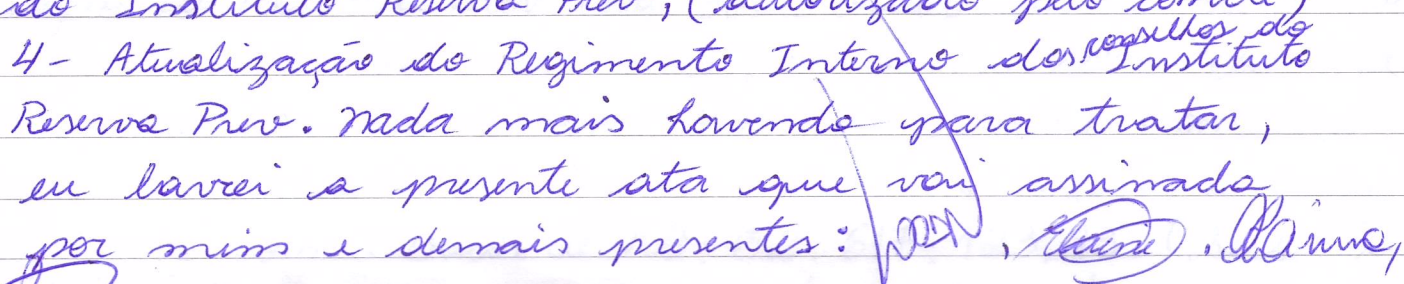 do Instituto Reserva Prev, (autorizado pelo
4- Atualização do Regimento Interno dos conselhos do Instituto
Reserva Prev. Nada mais havendo para tratar,
eu lavrei a presente ata que vai assinada
por mim e demais presentes: , Elaine,